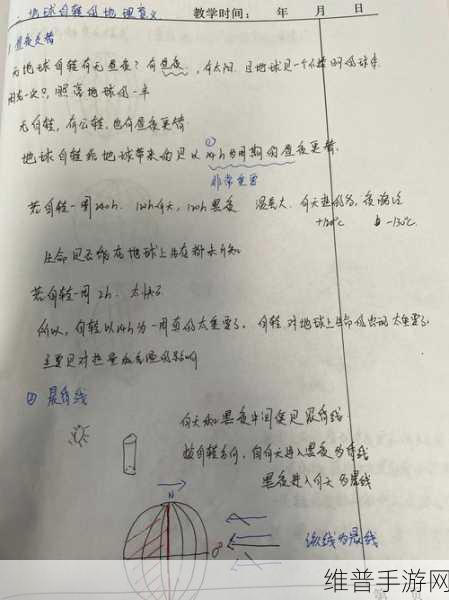 地球自转的地理意义 教学时间： 年 月 日
1 昼夜更替
无地球自转有无昼夜？有昼夜，有太阳，且地球是一个不透明的球体
因为一次只照亮地球的一半
无自转，有公转，也有昼夜更替
地球自转给地球带来的是以24h为周期的昼夜更替.
非常重要
若自转一周240h. 120h白天，120h黑夜 温差大. 白天热的多，夜
+120℃ -130℃
生命是否能在地球上生存都未可知
若自转一周2h. 太快了
所以，自转以24h为一周真的太重要了. 自转对地球上生命的出现太重要了.
主要是对热量
② 晨昏线
白天和黑夜中间便是晨昏线
按自转方向，自白天进入黑夜为昏线
黑夜进入白天为晨线
N
该线为晨线
维普手游网